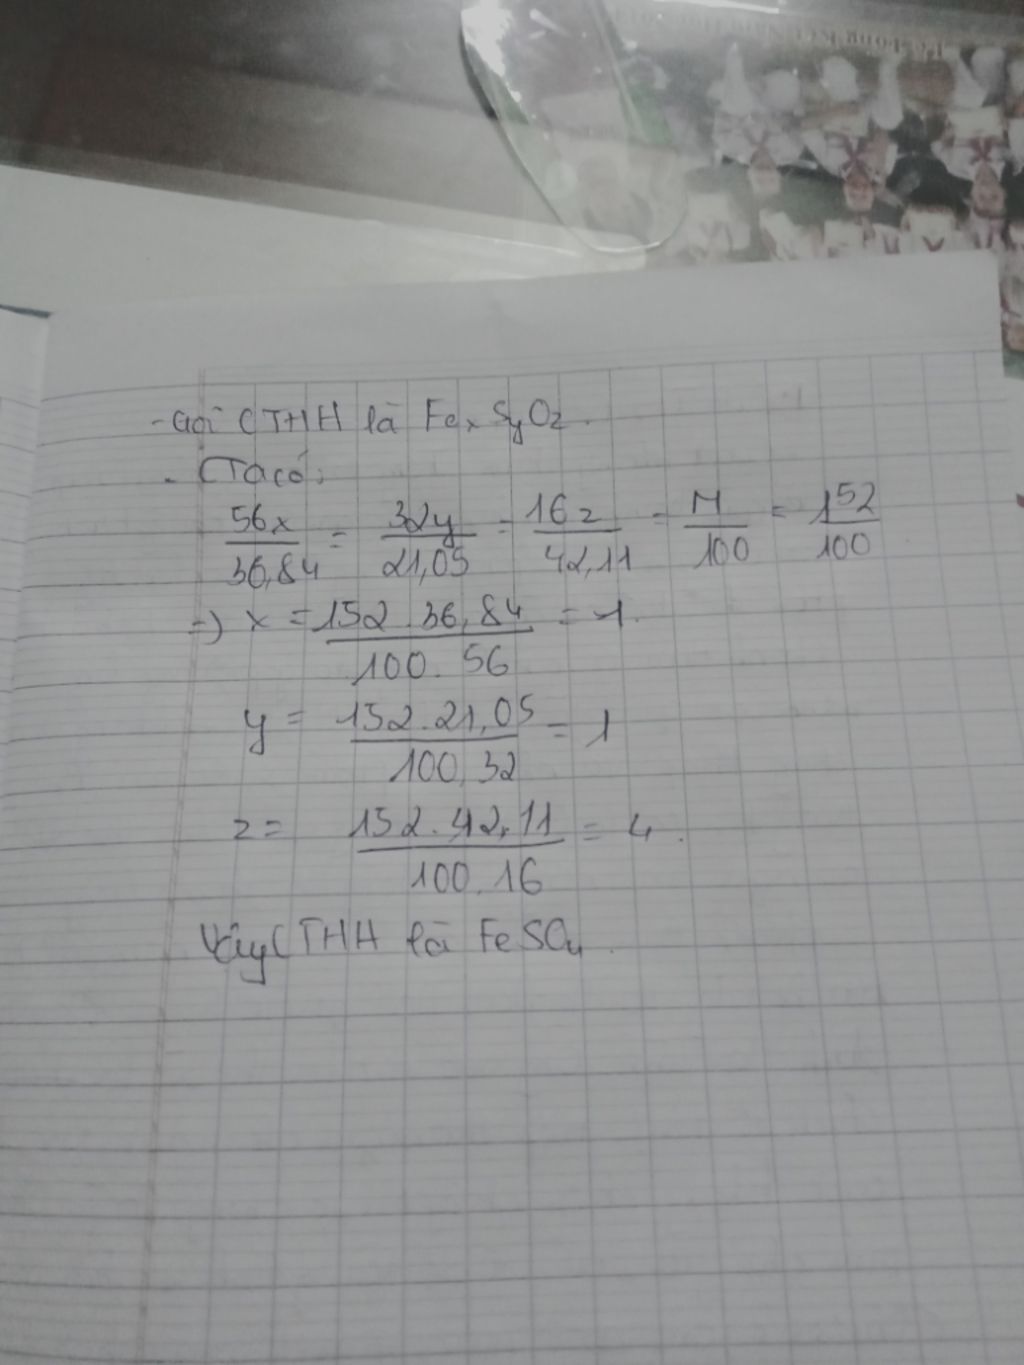 - Gọi CTHH là FexSyOz.
- Ta có:
56x/36,84 = 32y/21,05 = 16z/42,11 = M/100 = 152/100
=) x = 152.36,84/100.56 = 1.
y = 152.21,05/100.32 = 1
z = 152.42,11/100.16 = 4.
Vậy CTHH là FeSO4.